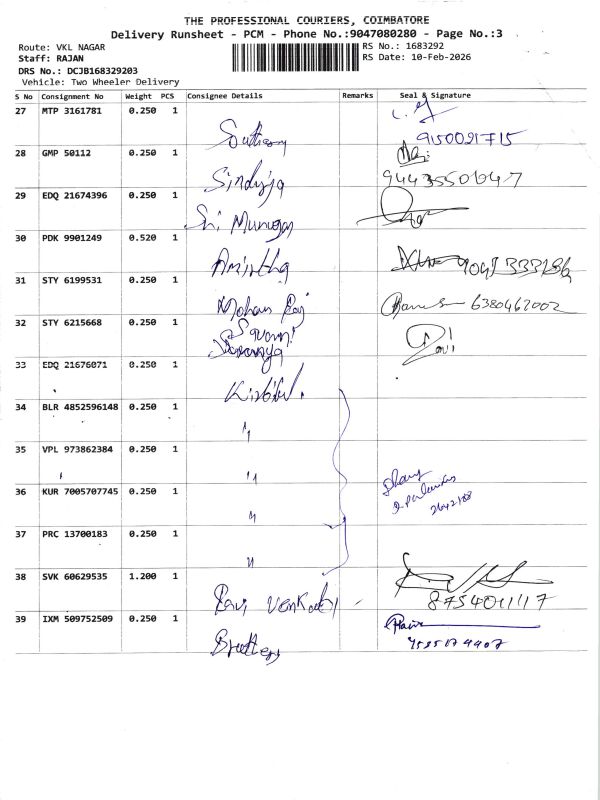 THE PROFESSIONAL COURIERS, COIMBATORE
Delivery Runsheet - PCM - Phone No.:9047080280 - Page No.:3
Route: VKL NAGAR
RS No.: 1683292
Staff: RAJAN
RS Date: 10-Feb-2026
DRS No.: DCJB168329203
Vehicle: Two Wheeler Delivery
S No Consignment No Weight PCS Consignee Details Remarks Seal & Signature
27 MTP 3161781 0.250 1 Southern 9150021715
28 GMP 50112 0.250 1
29 EDQ 21674396 0.250 1 Sri Murugan
30 PDK 9901249 0.520 1 Amirtha
31 STY 6199531 0.250 1 Mohan Raj 6380462002
32 STY 6215668 0.250 1 Saranya
33 EDQ 21676071 0.250 1
34 BLR 4852596148 0.250 1 "
35 VPL 973862384 0.250 1 "
36 KUR 7005707745 0.250 1 "
37 PRC 13700183 0.250 1 "
38 SVK 60629535 1.200 1 8754011117
39 IXM 509752509 0.250 1 Brothers